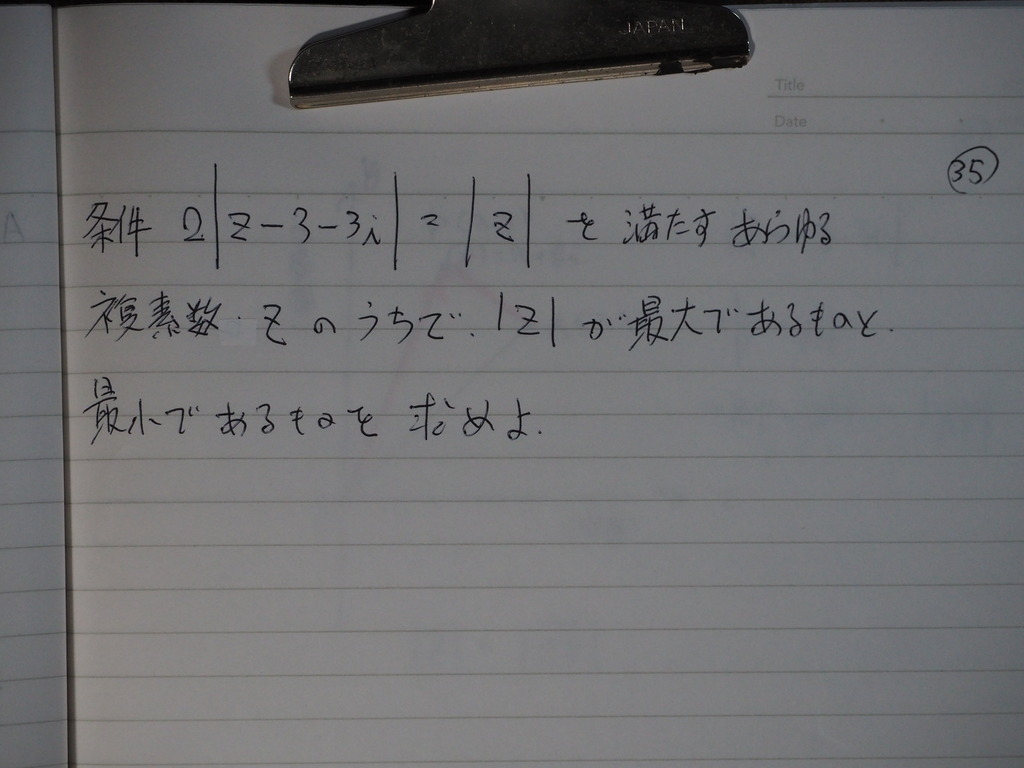 JAPAN
Title
Date
35
条件 2|z-3-3i| = |z| を満たすあらゆる
複素数 z のうちで、|z| が最大であるものと、
最小であるものを求めよ.